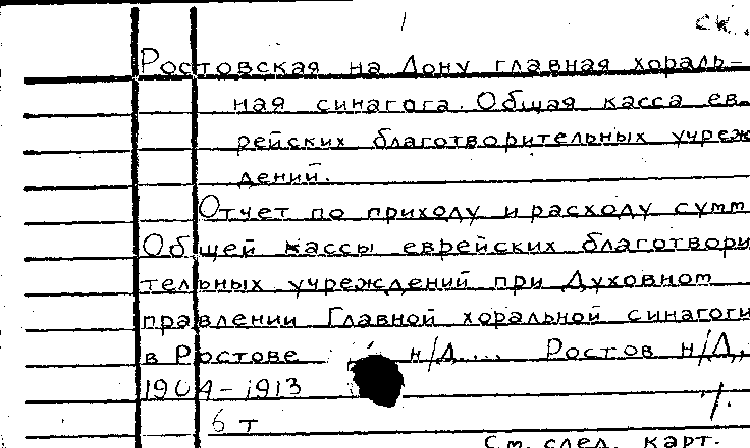 1 ск.
Ростовская на Дону главная хораль-
ная синагога. Общая касса ев-
рейских благотворительных учреж
дений.
Отчет по приходу и расходу сумм
Общей кассы еврейских благотвори
тельных учреждений при Духовном
правлении Главной хоральной синагоги
в Ростове н/Д.... Ростов н/Д,
1904-1913
6 т
См. след. карт.